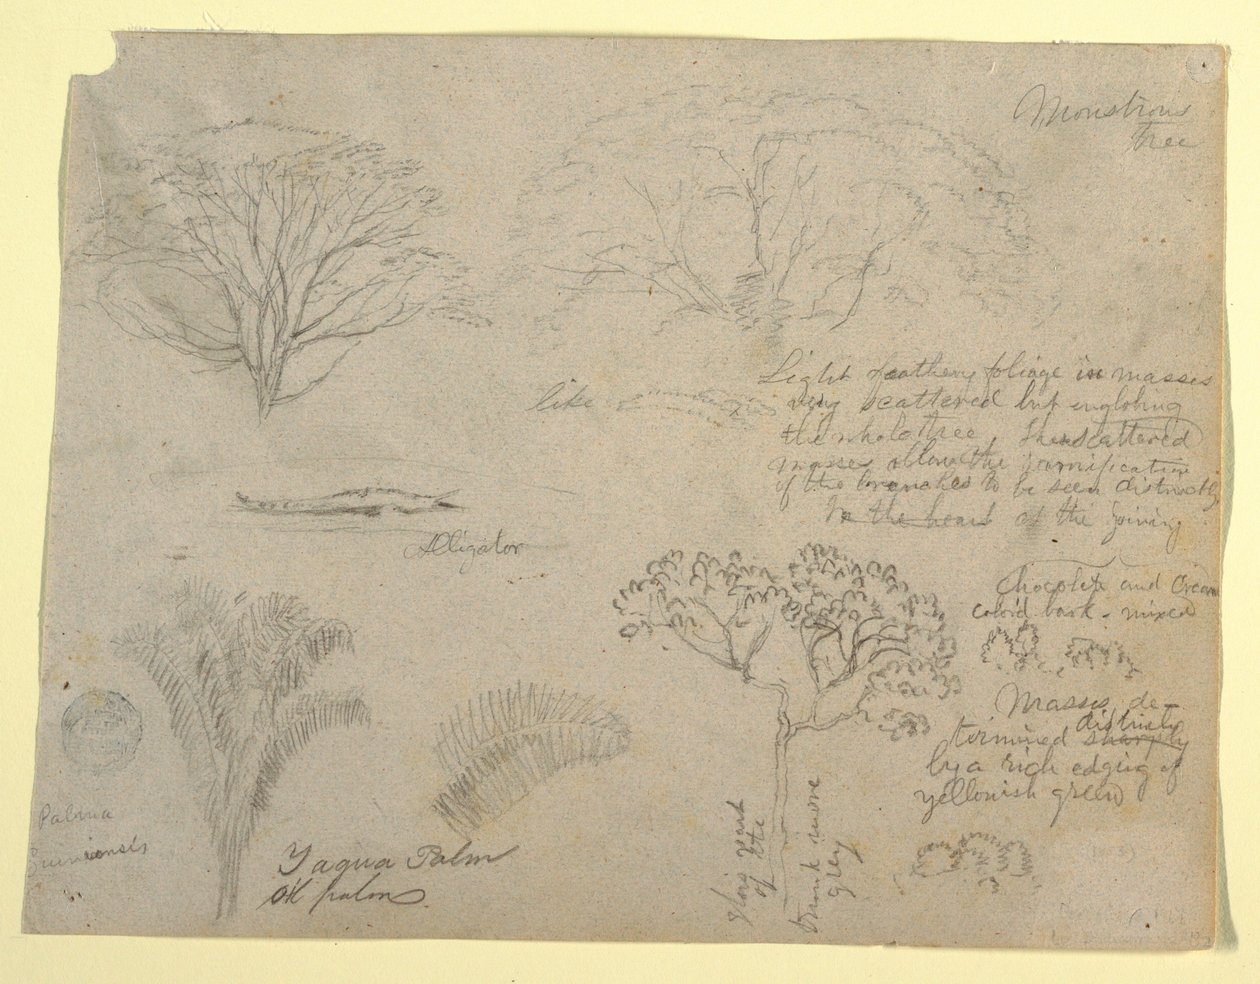 Monstrous
Tree
like
Light feathery foliage in masses
very scattered but englobing
the whole tree, the scattered
masses allow the ramification
of the branches to be seen distinctly
In the heart of the joining
Alligator
Chocolate and Cream
color'd bark - mixed
Masses de-
distinctly
termined sharply
by a rich edging of
yellowish green
Yagua Palm
Oil palm
Palma
this part
of etc
trunk more
grey